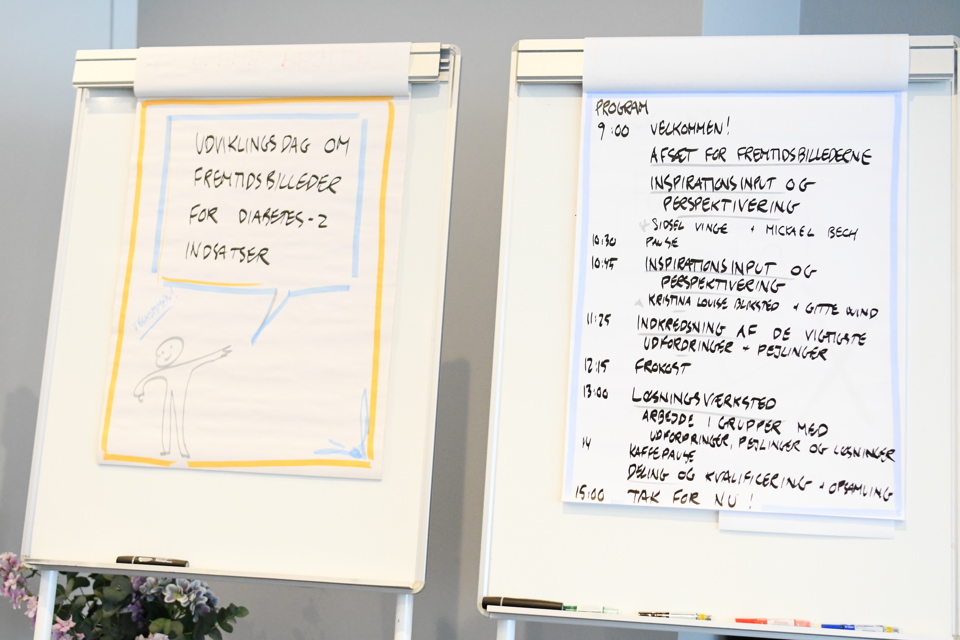 UDVIKLINGSDAG OM
FREMTIDSBILLEDER
FOR DIABETES-2
INDSATSER
PROGRAM
9:00 VELKOMMEN!
AFSÆT FOR FREMTIDSBILLEDERNE
INSPIRATIONSINPUT OG
PERSPEKTIVERING
SIDSEL VINGE + MICKAEL BECH
10:30 PAUSE
10:45 INSPIRATIONSINPUT OG
PERSPEKTIVERING
KRISTINA LOUISE BLIKSTED + GITTE WIND
11:25 INDKREDSNING AF DE VIGTIGSTE
UDFORDRINGER + PEJLINGER
12:15 FROKOST
13:00 LØSNINGSVÆRKSTED
ARBEJDE I GRUPPER MED
UDFORDRINGER, PEJLINGER OG LØSNINGER
14 KAFFEPAUSE
DELING OG KVALIFICERING + OPSAMLING
15:00 TAK FOR NU!